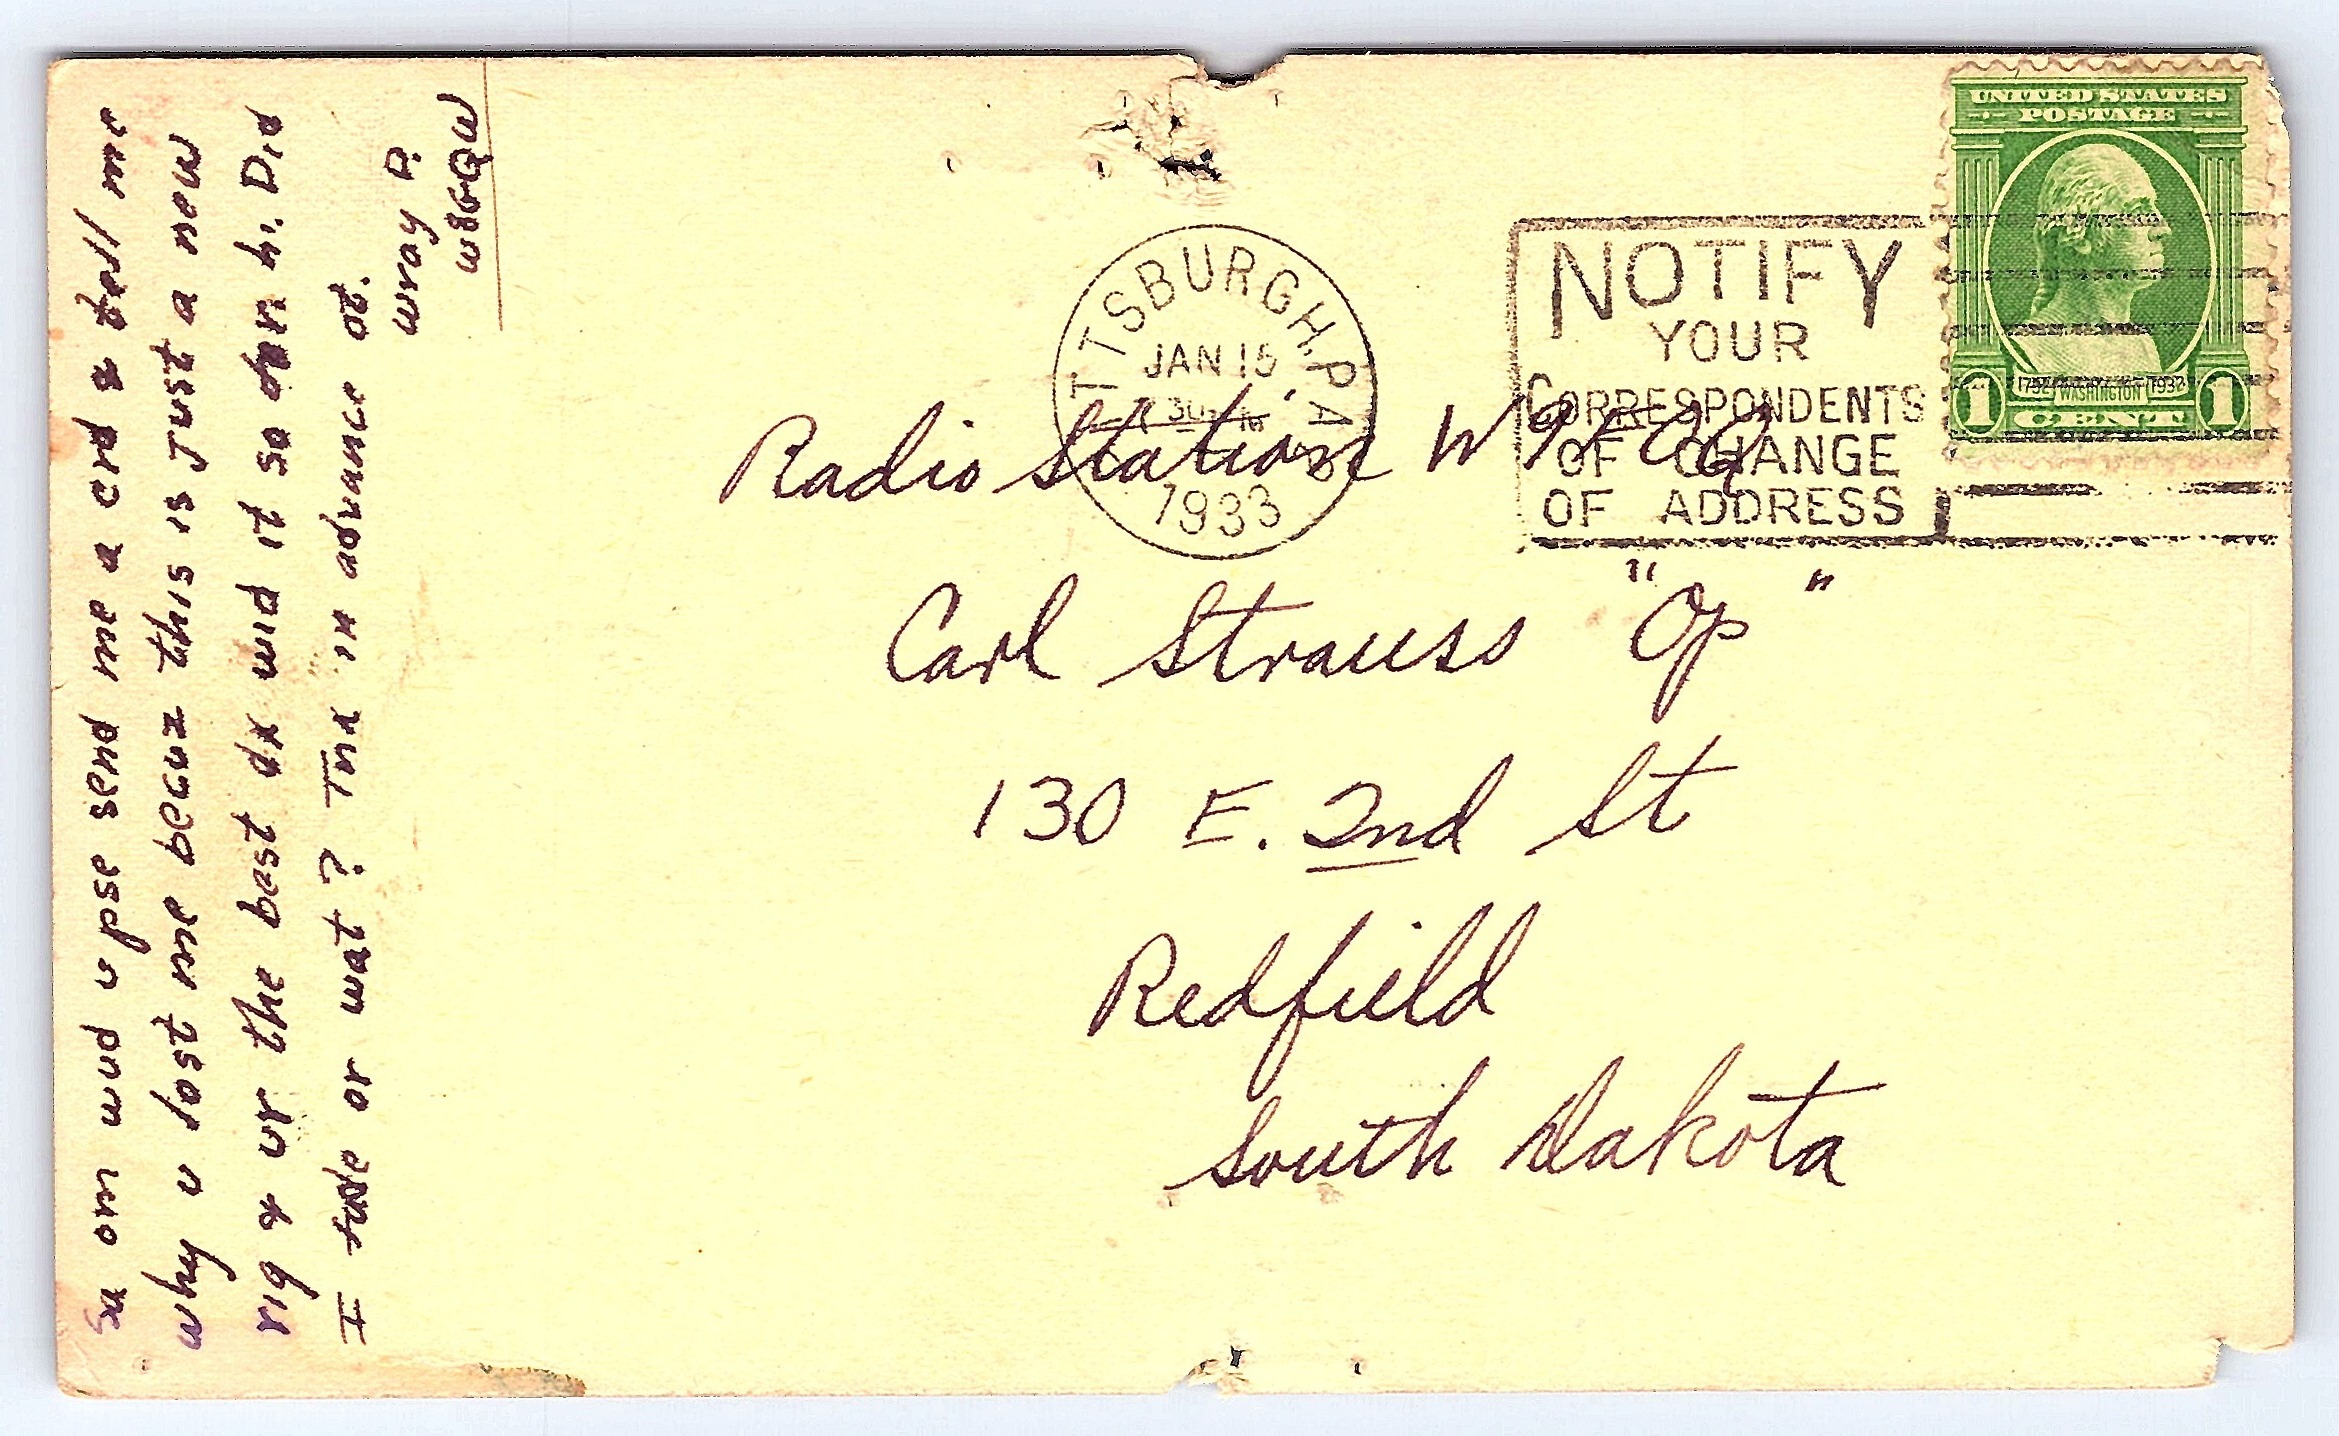 Sa om wud u pse send me a crd & tell me
why u lost me becuz this is Just a new
rig & ur the best dx wid it so far hi. Did
I fade or wat? Tnx in advance ot.
Wray D.
UNITED STATES
POSTAGE
1732 WASHINGTON 1932
1 CENT 1
TTSBURGH, PA
JAN 15
1933
NOTIFY
YOUR
CORRESPONDENTS
OF CHANGE
OF ADDRESS
Radio Station
Carl Strauss "Op"
130 E. 2nd St
Redfield
South Dakota